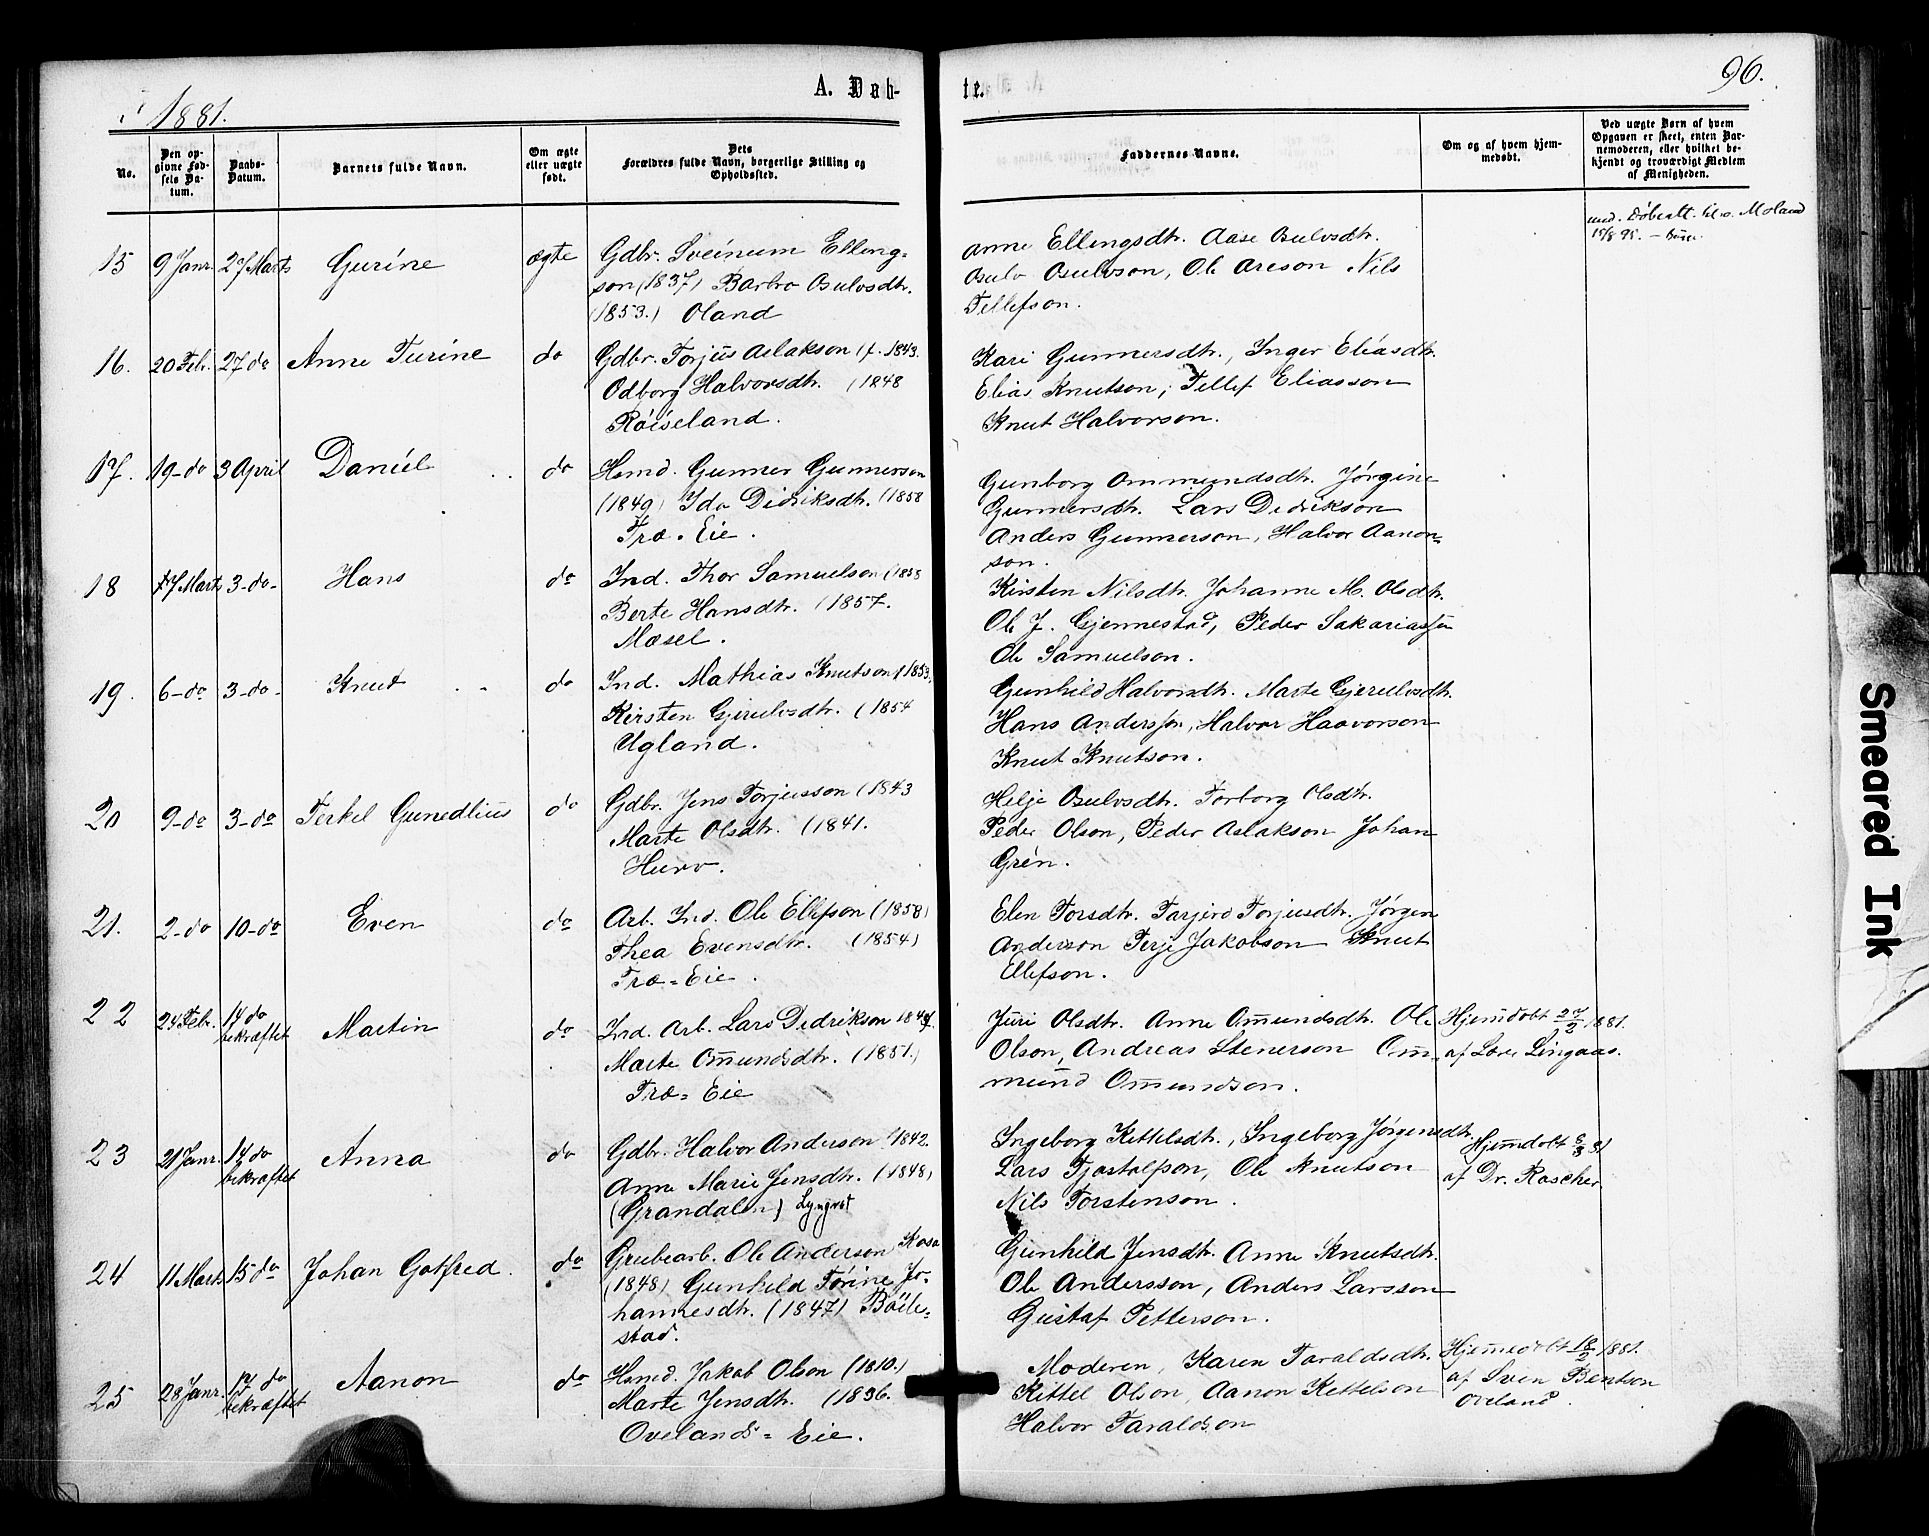 1881.
A. Døb-
te.
96.
No.
Den op-
givne Fød-
sels Da-
tum.
Daabs-
Datum.
Barnets fulde Navn.
Om ægte
eller uægte
født.
Dets
Forældres fulde Navn, borgerlige Stilling og
Opholdssted.
Faddernes Navne.
Om og af hvem hjem-
medøbt.
Ved uægte Børn af hvem
Opgaven er skeet, enten Bar-
nemoderen, eller hvilket be-
kjendt og troværdigt Medlem
af Menigheden.
15 9 Janr. 27 Marts Gurine ægte
Gdbr. Sveinum Elling-
son (1837) Barbro Osulvsdtr.
(1853.) Oland
Anne Ellingsdtr. Aase Osulvsdtr.
Osulv Osulvson, Ole Areson Nils
Tellefson.
Døbeatt. Moland
15/8 95.
16. 20 Febr. 27 do Anne Turine do
Gdbr. Torjus Aslakson (f. 1843.
Odborg Halvorsdtr. (1848
Röiseland.
Kari Gunnersdtr., Inger Eliasdtr.
Elias Knutson, Tellef Eliasson
Knut Halvorson.
17. 19-do 3 April Daniel do
Hsmd. Gunner Gunnerson
(1849) Ida Didriksdtr. (1858
Træ-Eie.
Gunborg Ommundsdtr. Jørgine
Gunnersdtr. Lars Dedrikson
Anders Gunnerson, Halvor Aanon-
son.
18 Marts 3-do- Hans do
Ind. Thor Samuelson (1858
Berte Hansdtr. (1857.
Mæsel.
Kirsten Nilsdtr. Johanne M. Olsdtr.
Ole J. Gjennestad, Peder Sakariassen
Ole Samuelson.
19. 6-do 3-do- Knut do
Ind. Mathias Knutson (1853.
Kirsten Gjerulvsdtr. (1854
Ugland.
Gunhild Halvorsdtr. Marte Gjerulvsdtr.
Hans Anderssen, Halvor Haavorson
Knut Knutson.
20 9-do 3-do Terkel Gunedlius do
Gdbr. Jens Torjusson (1843
Marte Olsdtr. (1841.
Hurv.
Helje Osulvsdtr. Torborg Olsdtr.
Peder Olson, Peder Aslakson Johan
Grén.
21. 2-do 10-do Even do
Arb. Ind. Ole Ellefson (1858)
Thea Evensdtr. (1854)
Træ-Eie.
Elen Torsdtr. Tarjerd Torjusdtr. Jørgen
Anderson Terje Jakobson Knut
Ellefson.
22 24 Febr. 14 do
bekræftet Martin do
Ind. Arb. Lars Dedrikson
Marte Omundsdtr. (1851.)
Træ-Eie
Juri Olsdtr. Anne Omundsdtr. Ole
Olson, Andreas Stenerson Om-
mund Omundson.
Hjemmedöbt 27/2 1881.
af Lærer Lingaas.
23 21 Janr. 14 do
bekræftet Anna do
Gdbr. Halvor Anderson (1842.
Anne Marie Jensdtr. (1848)
(Grandalen) Lyngrot
Ingeborg Kittelsdtr., Ingeborg Jørgensdtr.
Lars Tjostolfson, Ole Knutson
Nils Torstenson.
Hjemmedöbt 81
af Dr. Rascher.
24 11 Marts 15 do Johan Gotfred. do
Grubearb. Ole Anderson Kasa
(1848) Gunhild Törine Jo-
hannesdtr. (1847) Böile-
stad.
Gunhild Jensdtr. Anne Knutsdtr.
Ole Andersson, Anders Larsson
Gustaf Petterson.
25 28 Janr. 17 do
bekræftet Aanon do
Hsmd. Jakob Olson (1810.)
Marte Jensdtr. (1836.
Ovelands-Eie.
Moderen, Karen Taraldsdtr.
Kittel Olson, Aanon Kettelson
Halvor Taraldson
Hjemmedöbt 1881.
af Sven Bentson
Oveland.
Smeared Ink